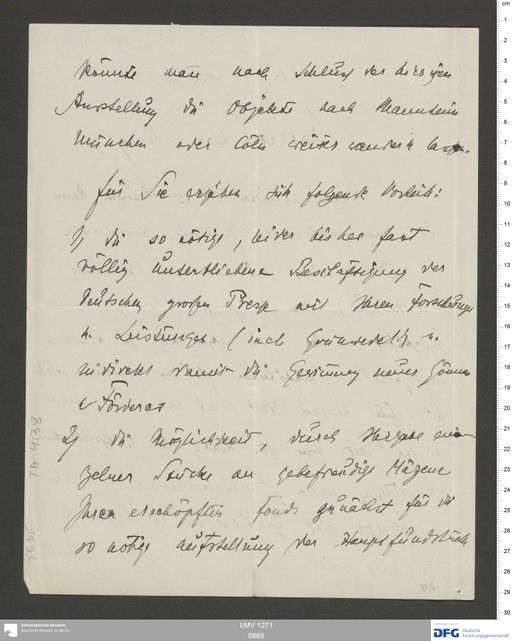 könnte man nach Schluß der hiesigen
Ausstellung die Objekte nach Mannheim
München oder Cöln weiter wandern lassen.
für Sie ergeben sich folgende Vorteile:
1, die so nötige, leider bisher fast
völlig unterbliebene Beschäftigung der
deutschen großen Presse mit Ihren Forschungen
u. Leistungen (incl Grünwedel!) u.
indirekt damit die Gewinnung neuer Gönner
& Förderer
2, die Möglichkeit, durch Hergabe ein-
zelner Stücke an gebefreudige Mäzene
Ihren erschöpften Fonds zunächst für die
so nötige Aufstellung der Hauptfundstücke
TA 4138
Ethnologisches Museum
Staatliche Museen zu Berlin
I/MV 1271
0665
DFG
Deutsche
Forschungsgemeinschaft